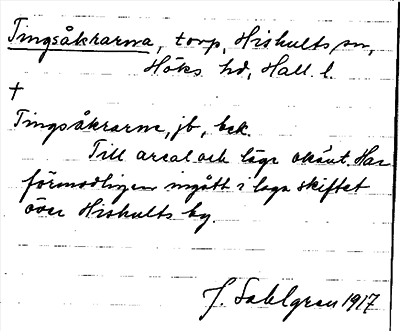 Tingsåkrarna, torp, Hishults sn,
Höks hd, Hall. l.
†
Tingsåkrarne, jb, bek.
Till areal och läge okänt. Har
förmodligen ingått i laga skiftet
över Hishults by.
J. Sahlgren 1917